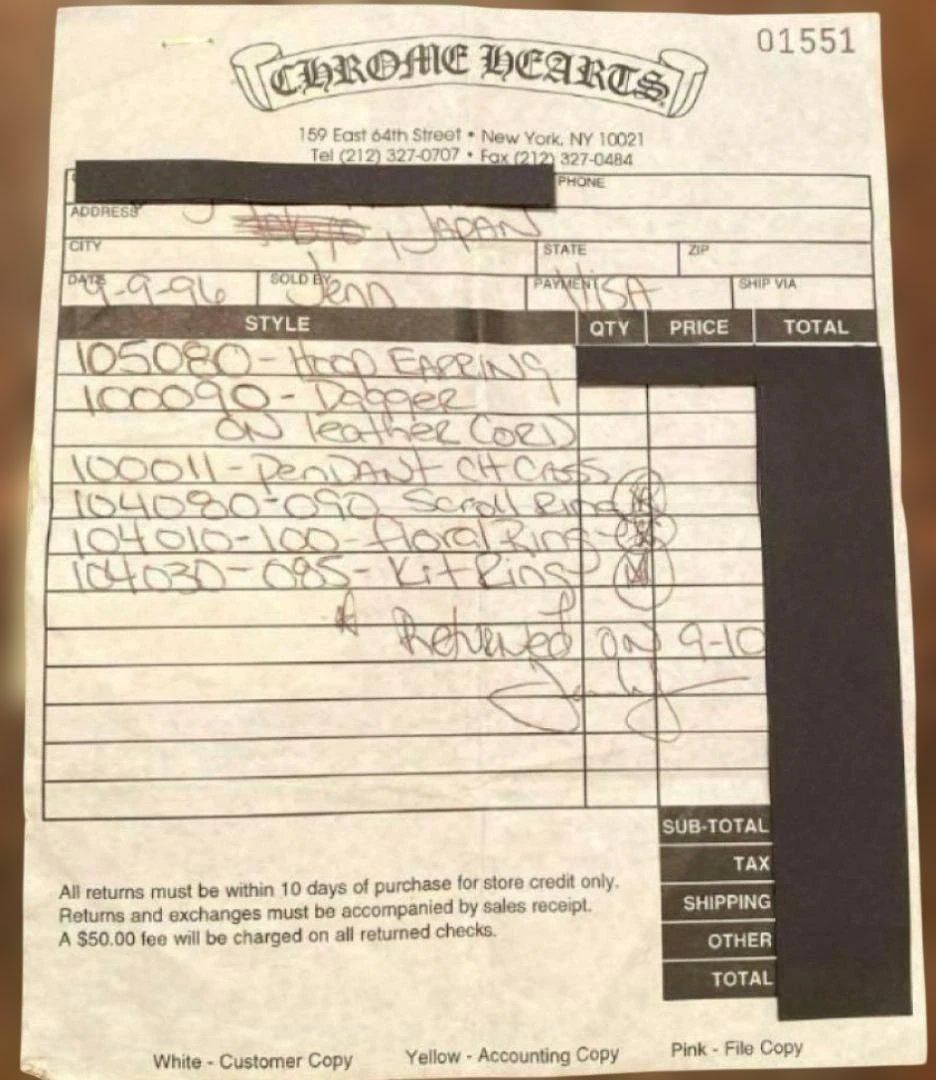 01551
CHROME HEARTS
159 East 64th Street • New York, NY 10021
Tel (212) 327-0707 • Fax (212) 327-0484
PHONE
ADDRESS , JAPAN
CITY STATE ZIP
DATE 9-9-96 SOLD BY Jenn PAYMENT VISA SHIP VIA
STYLE QTY PRICE TOTAL
105080 - HOOP EARRING
100090 - Dagger
ON leather CORD
100011 - PENDANT CH CROSS
104080-090 Scroll Ring
104010-100 - floral Ring
104030-085 - Kit Ring
* Returned ON 9-10
SUB-TOTAL
TAX
SHIPPING
OTHER
TOTAL
All returns must be within 10 days of purchase for store credit only.
Returns and exchanges must be accompanied by sales receipt.
A $50.00 fee will be charged on all returned checks.
White - Customer Copy Yellow - Accounting Copy Pink - File Copy